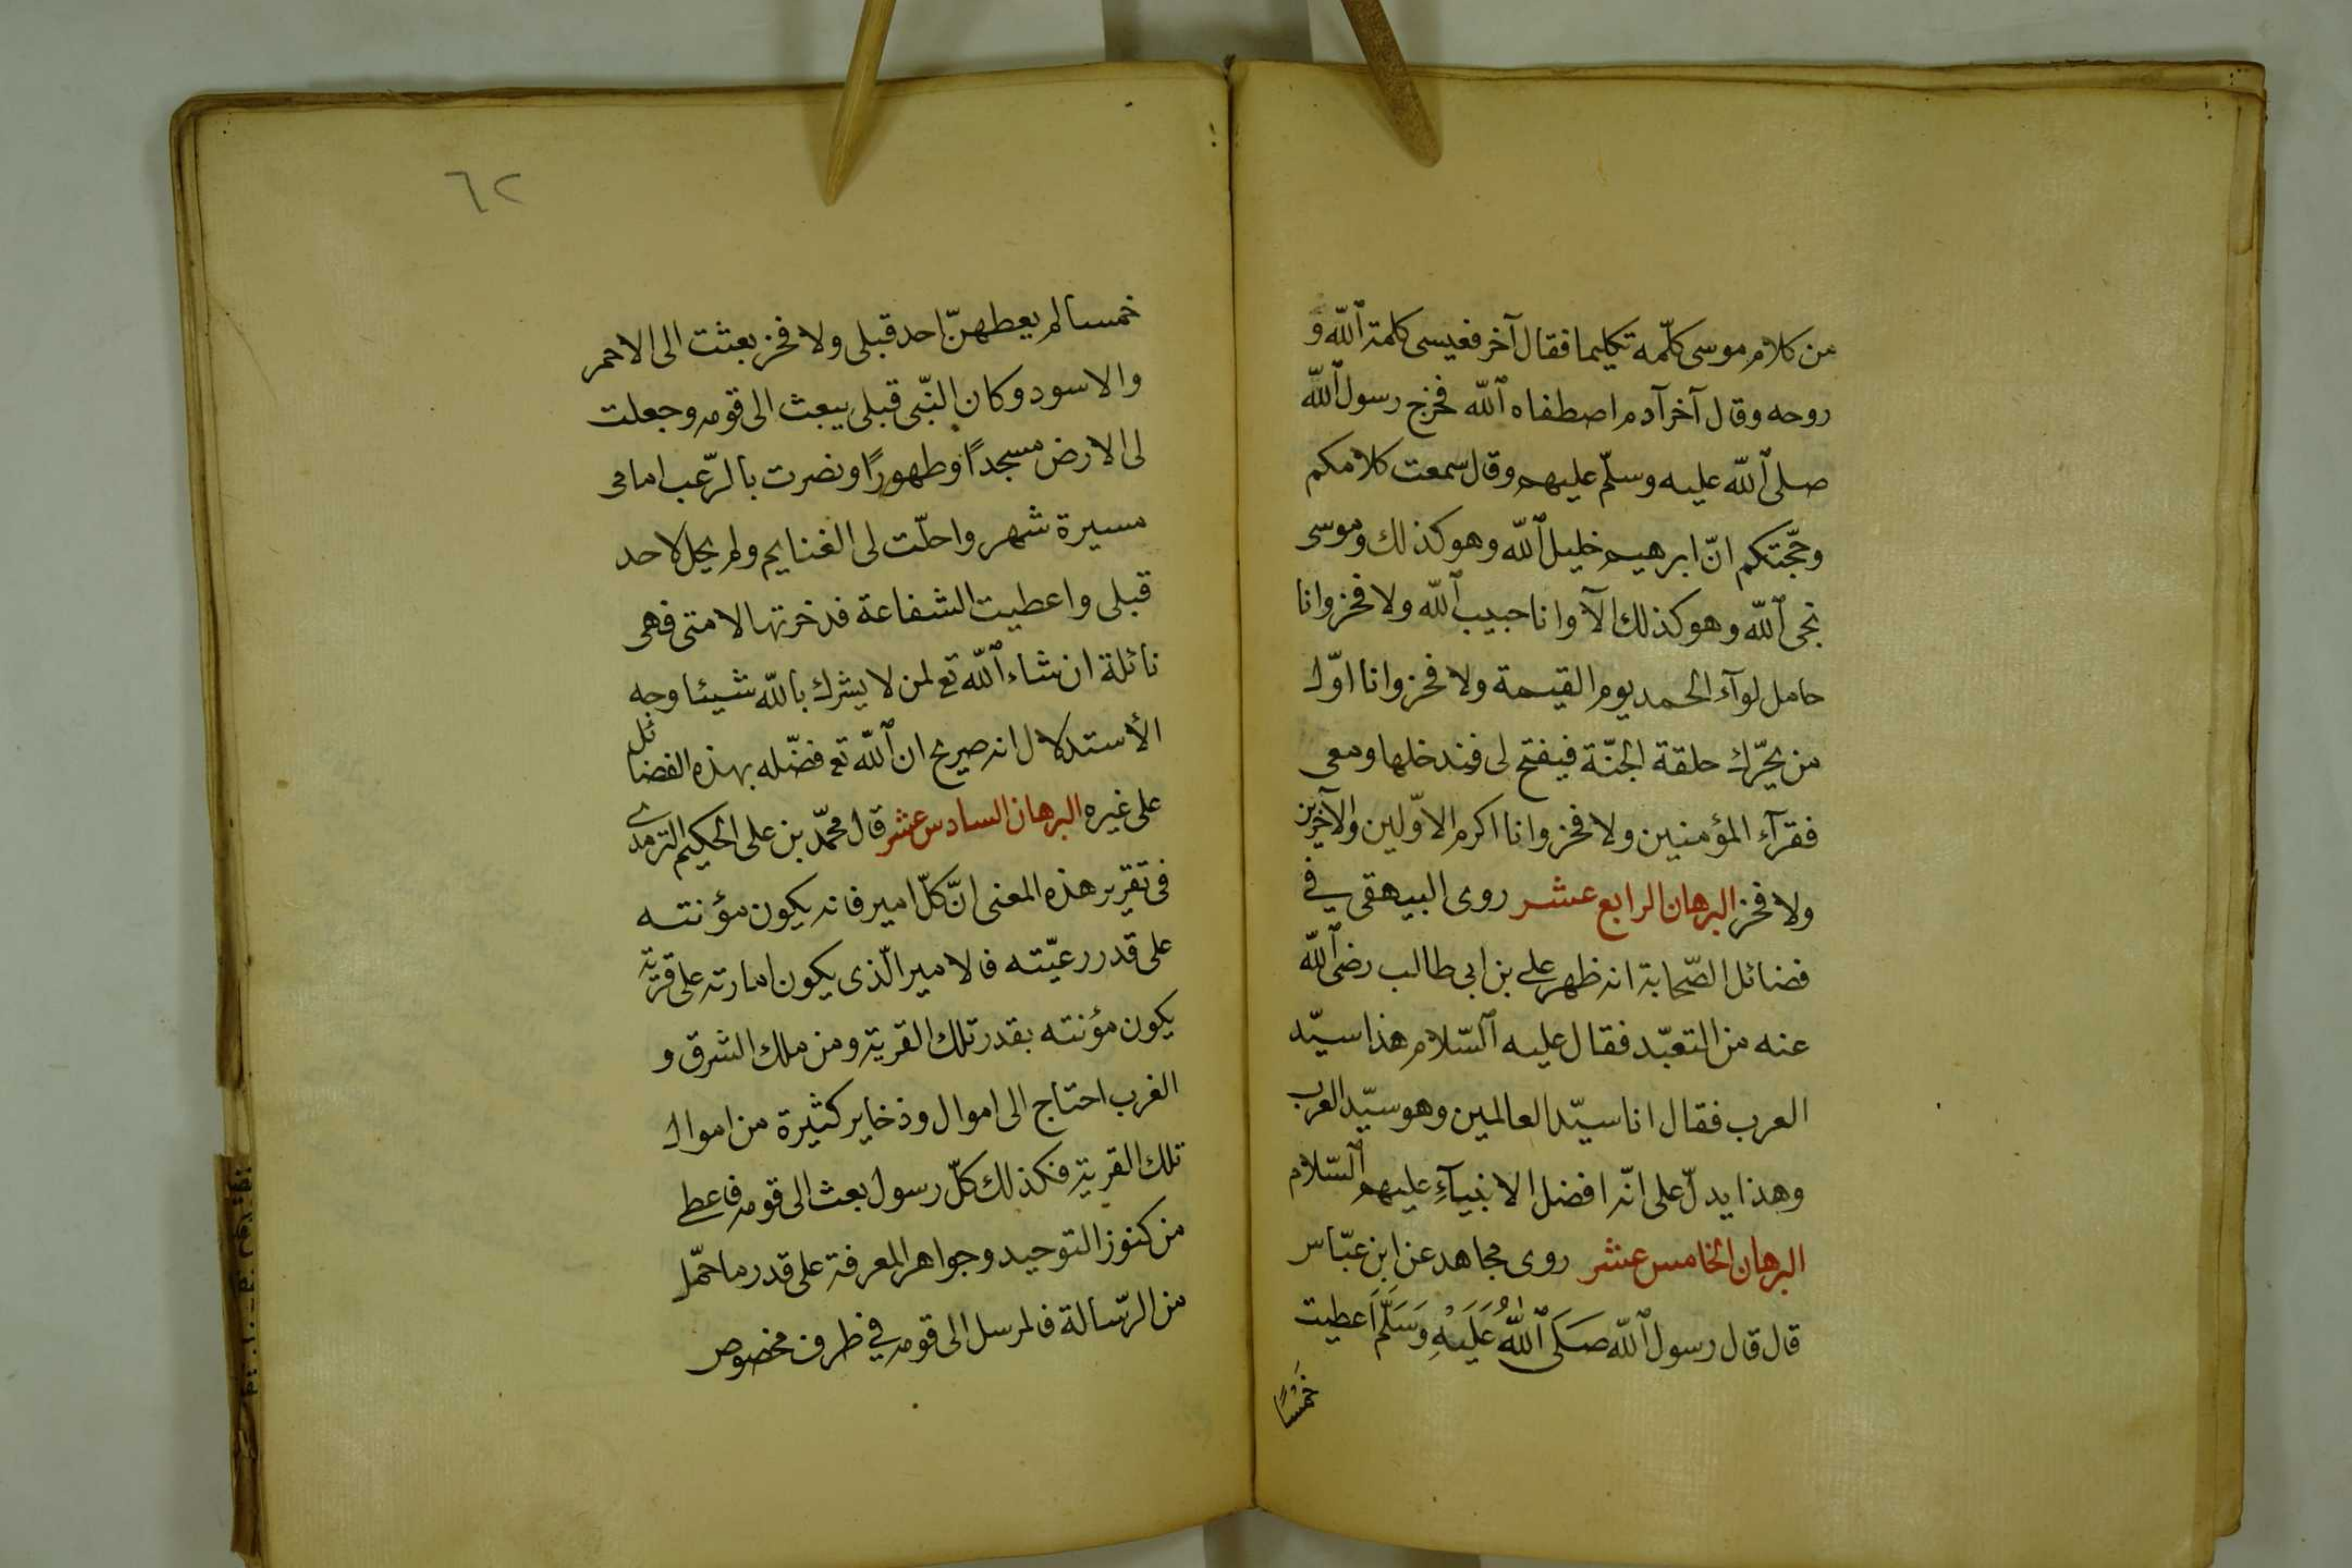 من كلام موسى كلّمه تكليما فقال آخر فعيسى كلمة الله و
روحه وقال آخر آدم اصطفاه الله فخرج رسول الله
صلى الله عليه وسلّم عليهم وقال سمعت كلامكم
وحجّتكم انّ ابرهيم خليل الله وهو كذلك وموسى
نجى الله وهو كذلك الآ وانا حبيب الله ولا فخر وانا
حامل لوآء الحمد يوم القيمة ولا فخر وانا اوّل
من يحرّك حلقة الجنّة فيفتح لى فيندخلها ومعى
فقرآء المؤمنين ولا فخر وانا اكرم الاوّلين والآخرين
ولا فخر البرهان الرابع عشر روى البيهقى فى
فضائل الصّحابة انه ظهر على بن ابى طالب رضى الله
عنه من التعبّد فقال عليه السّلام هذا سيّد
العرب فقال انا سيّد العالمين وهو سيّد العرب
وهذا يدلّ على انّه افضل الانبيآءِ عليهم السّلام
البرهان الخامس عشر روى مجاهد عن ابن عبّاس
قال قال رسول الله صَلَى اللهُ عَلَيْهِ وَسَلَّمَ اَعطيت
خمسًا
٦٢
خمسا لم يعطهنّ احد قبلى ولا فخر بعثت الى الاحمر
والاسود وكان النّبى قبلى يبعث الى قومه وجعلت
لى الارض مسجدًا وطهورًا ونصرت بالرّعب امامى
مسيرة شهر واحلّت لى الغنايم ولم يحل لاحد
قبلى واعطيت الشفاعة فدخرتها لامتى فهى
نائلة ان شاء الله تع لمن لا يشرك بالله شيئا وجه
الأستدلال انه صريح ان الله تع فضّله بهذه الفضائل
على غيره البرهان السادس عشر قال محمّد بن على الحكيم الترمدى
فى تقرير هذه المعنى انّ كلّ امير فانه يكون مؤنته
على قدر رعيّته فالامير الّذى يكون امارته على قرية
يكون مؤنته بقدر تلك القرية ومن ملك الشرق و
الغرب احتاج الى اموال وذخاير كثيرة من اموال
تلك القرية فكذلك كلّ رسول بعث الى قومه فاعطى
من كنوز التوحيد وجواهر المعرفة على قدر ما حمّل
من الرّسالة فالمرسل الى قومه فى طرف مخصوص